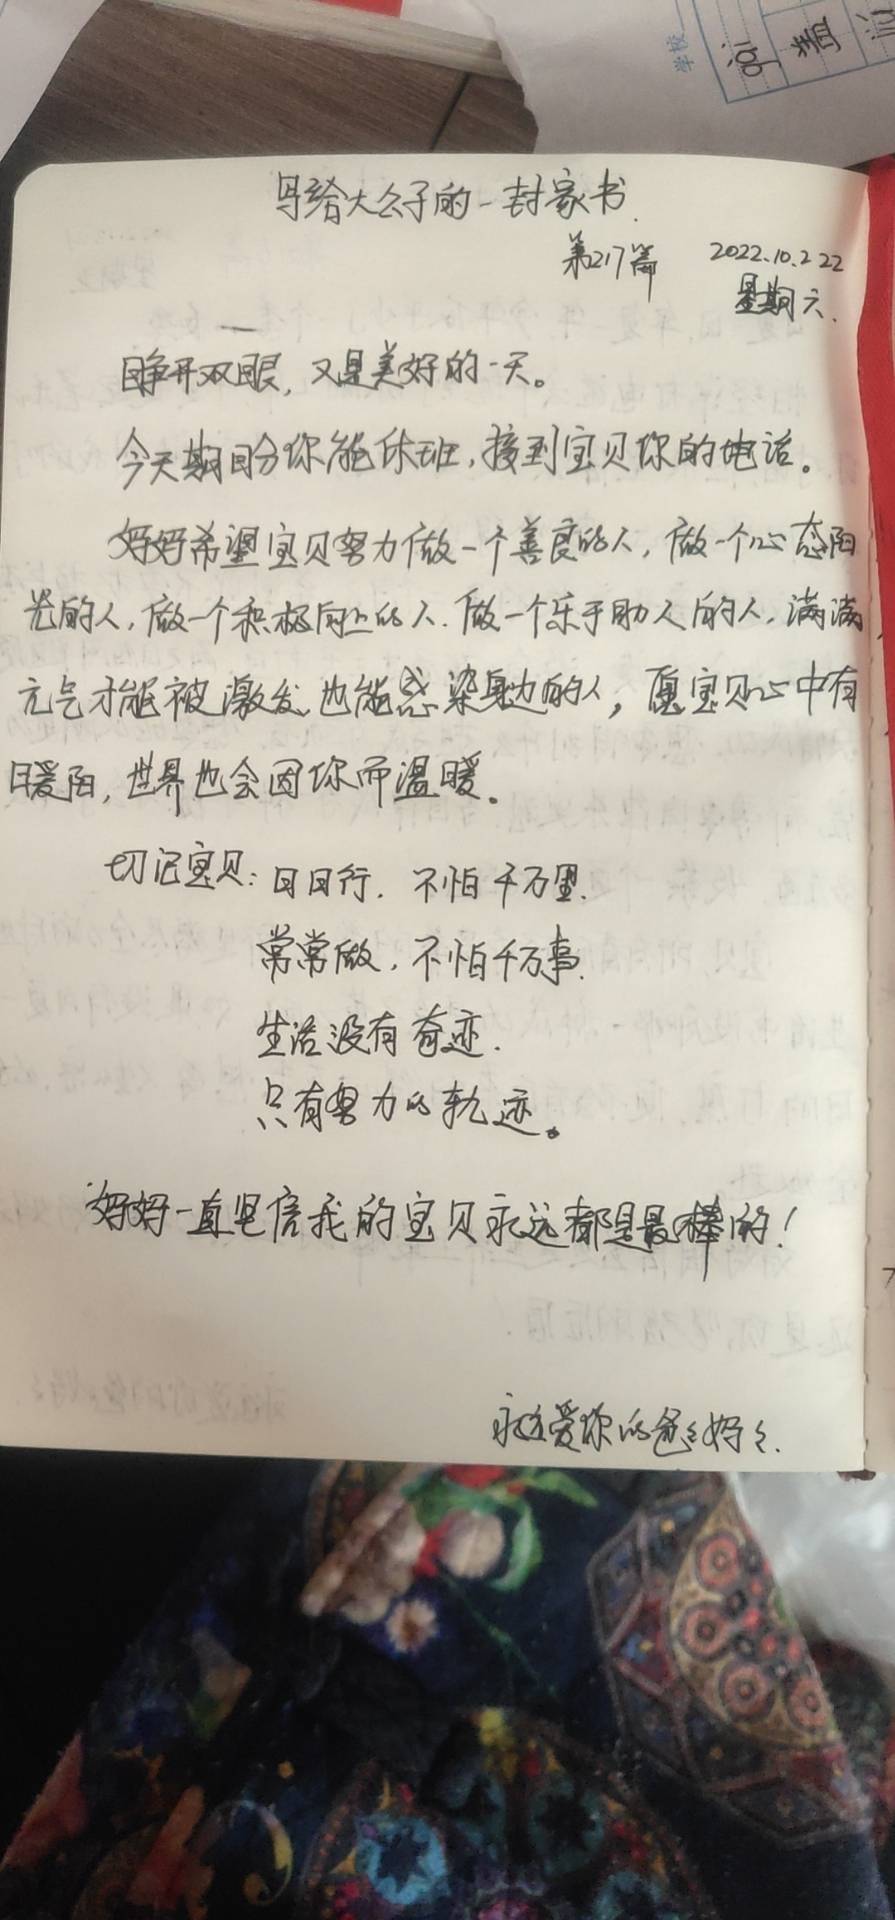 学校
gài
盖
写给大公子的一封家书.
第217篇 2022.10.222
星期六.
睁开双眼，又是美好的一天。
今天期盼你能休班，接到宝贝你的电话。
妈妈希望宝贝努力做一个善良的人，做一个心态阳
光的人，做一个积极向上的人.做一个乐于助人的人，满满
元气才能被激发，也能感染身边的人，愿宝贝心中有
暖阳，世界也会因你而温暖。
切记宝贝：日日行.不怕千万里.
常常做，不怕千万事.
生活没有奇迹.
只有努力的轨迹。
妈妈一直坚信我的宝贝永远都是最棒的！
永远爱你的爸々妈々.